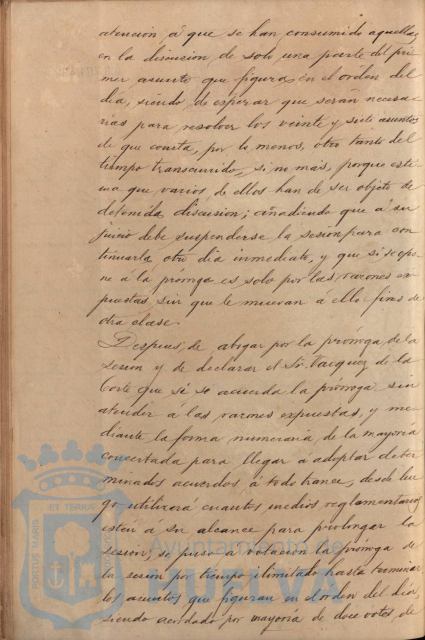 atención á que se han consumido aquellas
en la discusion de solo una parte del pri-
mer asunto que figura en el orden del
dia, siendo de esperar que serán necesa-
rias para resolver los veinte y siete asuntos
de que consta, por lo menos, otro tanto del
tiempo transcurrido, si no mas, porque esti-
ma que varios de ellos han de ser objeto de
detenida discusion; añadiendo que á su
juicio debe suspenderse la sesion para con-
tinuarla otro dia inmediato, y que si se opo-
ne á la próroga es solo por las razones ex-
puestas, sin que le muevan á ello fines de
otra clase.
Despues, de abogar por la próroga de la
sesion y de declarar el Sr. Vazquez de la
Corte que si se acuerda la próroga sin
atender á las razones expuestas, y me-
diante la forma numeraria de la mayoría
concertada para llegar á adoptar deter-
minados acuerdos á todo trance, desde lue-
go utilizará cuantos medios reglamentarios
estén á su alcance para prolongar la
sesion; se puso á votacion la próroga de
la sesion por tiempo ilimitado hasta terminar
los asuntos que figuran en el orden del dia,
siendo acordado por mayoría de doce votos, de
PORTUS MARIS
ET TERRA
Ayuntamiento de